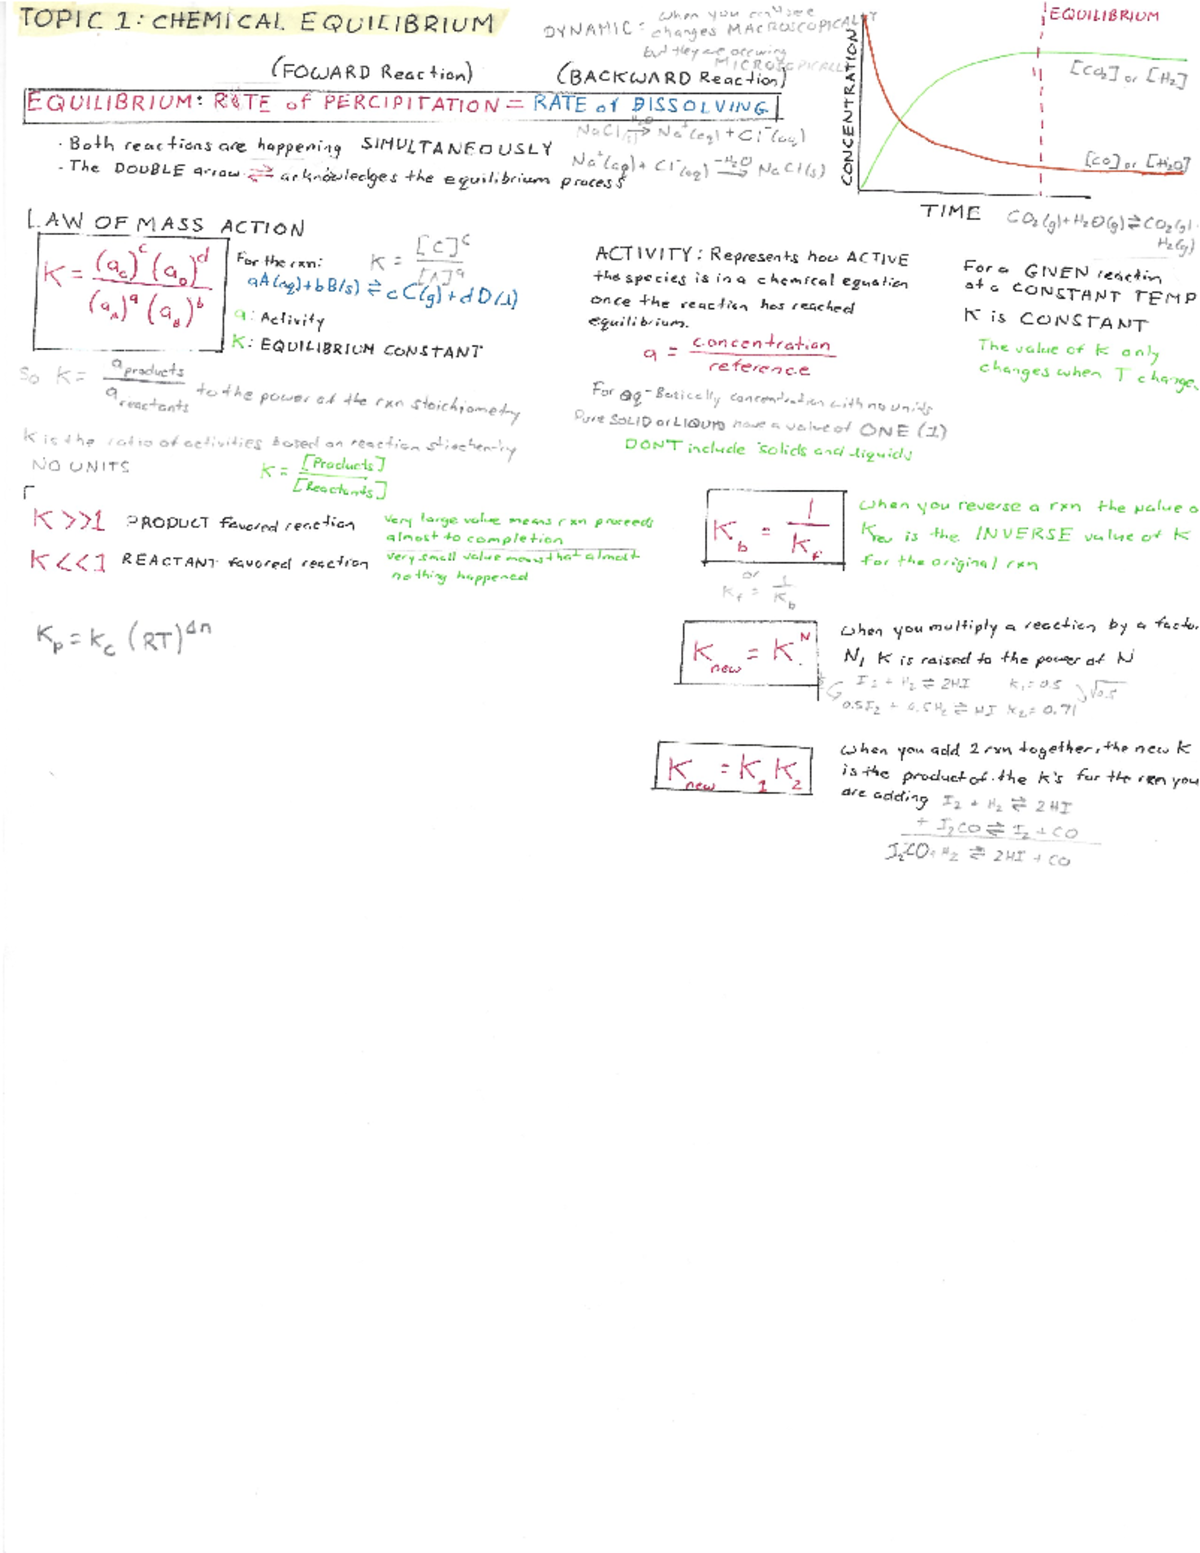 TOPIC 1: CHEMICAL EQUILIBRIUM
DYNAMIC: when you can't see
changes MACROSCOPICALLY
but they are occuring
MICROSCOPICALLY
(FOWARD Reaction) (BACKWARD Reaction)
EQUILIBRIUM: RATE of PERCIPITATION = RATE of DISSOLVING
· Both reactions are happening SIMULTANEOUSLY
· The DOUBLE arrow ⇌ acknowledges the equilibrium process
NaCl(s) →H₂O Na⁺(aq) + Cl⁻(aq)
Na⁺(aq) + Cl⁻(aq) –H₂O→ NaCl(s)
EQUILIBRIUM
CONCENTRATION
[CO₂] or [H₂]
[CO] or [H₂O]
TIME
CO₂(g) + H₂O(g) ⇌ CO₂(g) ·
H₂(g)
LAW OF MASS ACTION
K = (a_C)^c (a_D)^d / (a_A)^a (a_B)^b
For the rxn:
aA(aq) + bB(s) ⇌ cC(g) + dD(l)
K = [C]^c / [A]^a
a: Activity
K: EQUILIBRIUM CONSTANT
So K = a_products / a_reactants to the power of the rxn stoichiometry
K is the ratio of activities based on reaction stiochemtry
NO UNITS
K = [Products] / [Reactants]
ACTIVITY: Represents how ACTIVE
the species is in a chemical equation
once the reaction has reached
equilibrium.
a = concentration / reference
For aq - Basically concentration with no units
Pure SOLID or LIQUID have a value of ONE (1)
DON'T include solids and liquids
For a GIVEN reaction
at a CONSTANT TEMP
K is CONSTANT
The value of K only
changes when T change
K >> 1 PRODUCT favored reaction
very large value means rxn proceeds
almost to completion
K << 1 REACTANT favored reaction
very small value means that almost
nothing happened
K_p = K_c (RT)^Δn
K_b = 1 / K_f
or
K_f = 1 / K_b
when you reverse a rxn the value o
K_rev is the INVERSE value of K
for the original rxn
K_new = K^N
when you multiply a reaction by a facto
N, K is raised to the power of N
I₂ + H₂ ⇌ 2HI K₁ = 0.5
√0.5
0.5I₂ + 0.5H₂ ⇌ HI K₂ = 0.71
K_new = K₁ K₂
when you add 2 rxn together, the new K
is the product of the K's for the rxn you
are adding
I₂ + H₂ ⇌ 2HI
+ I₂CO ⇌ I₂ + CO
I₂CO + H₂ ⇌ 2HI + CO